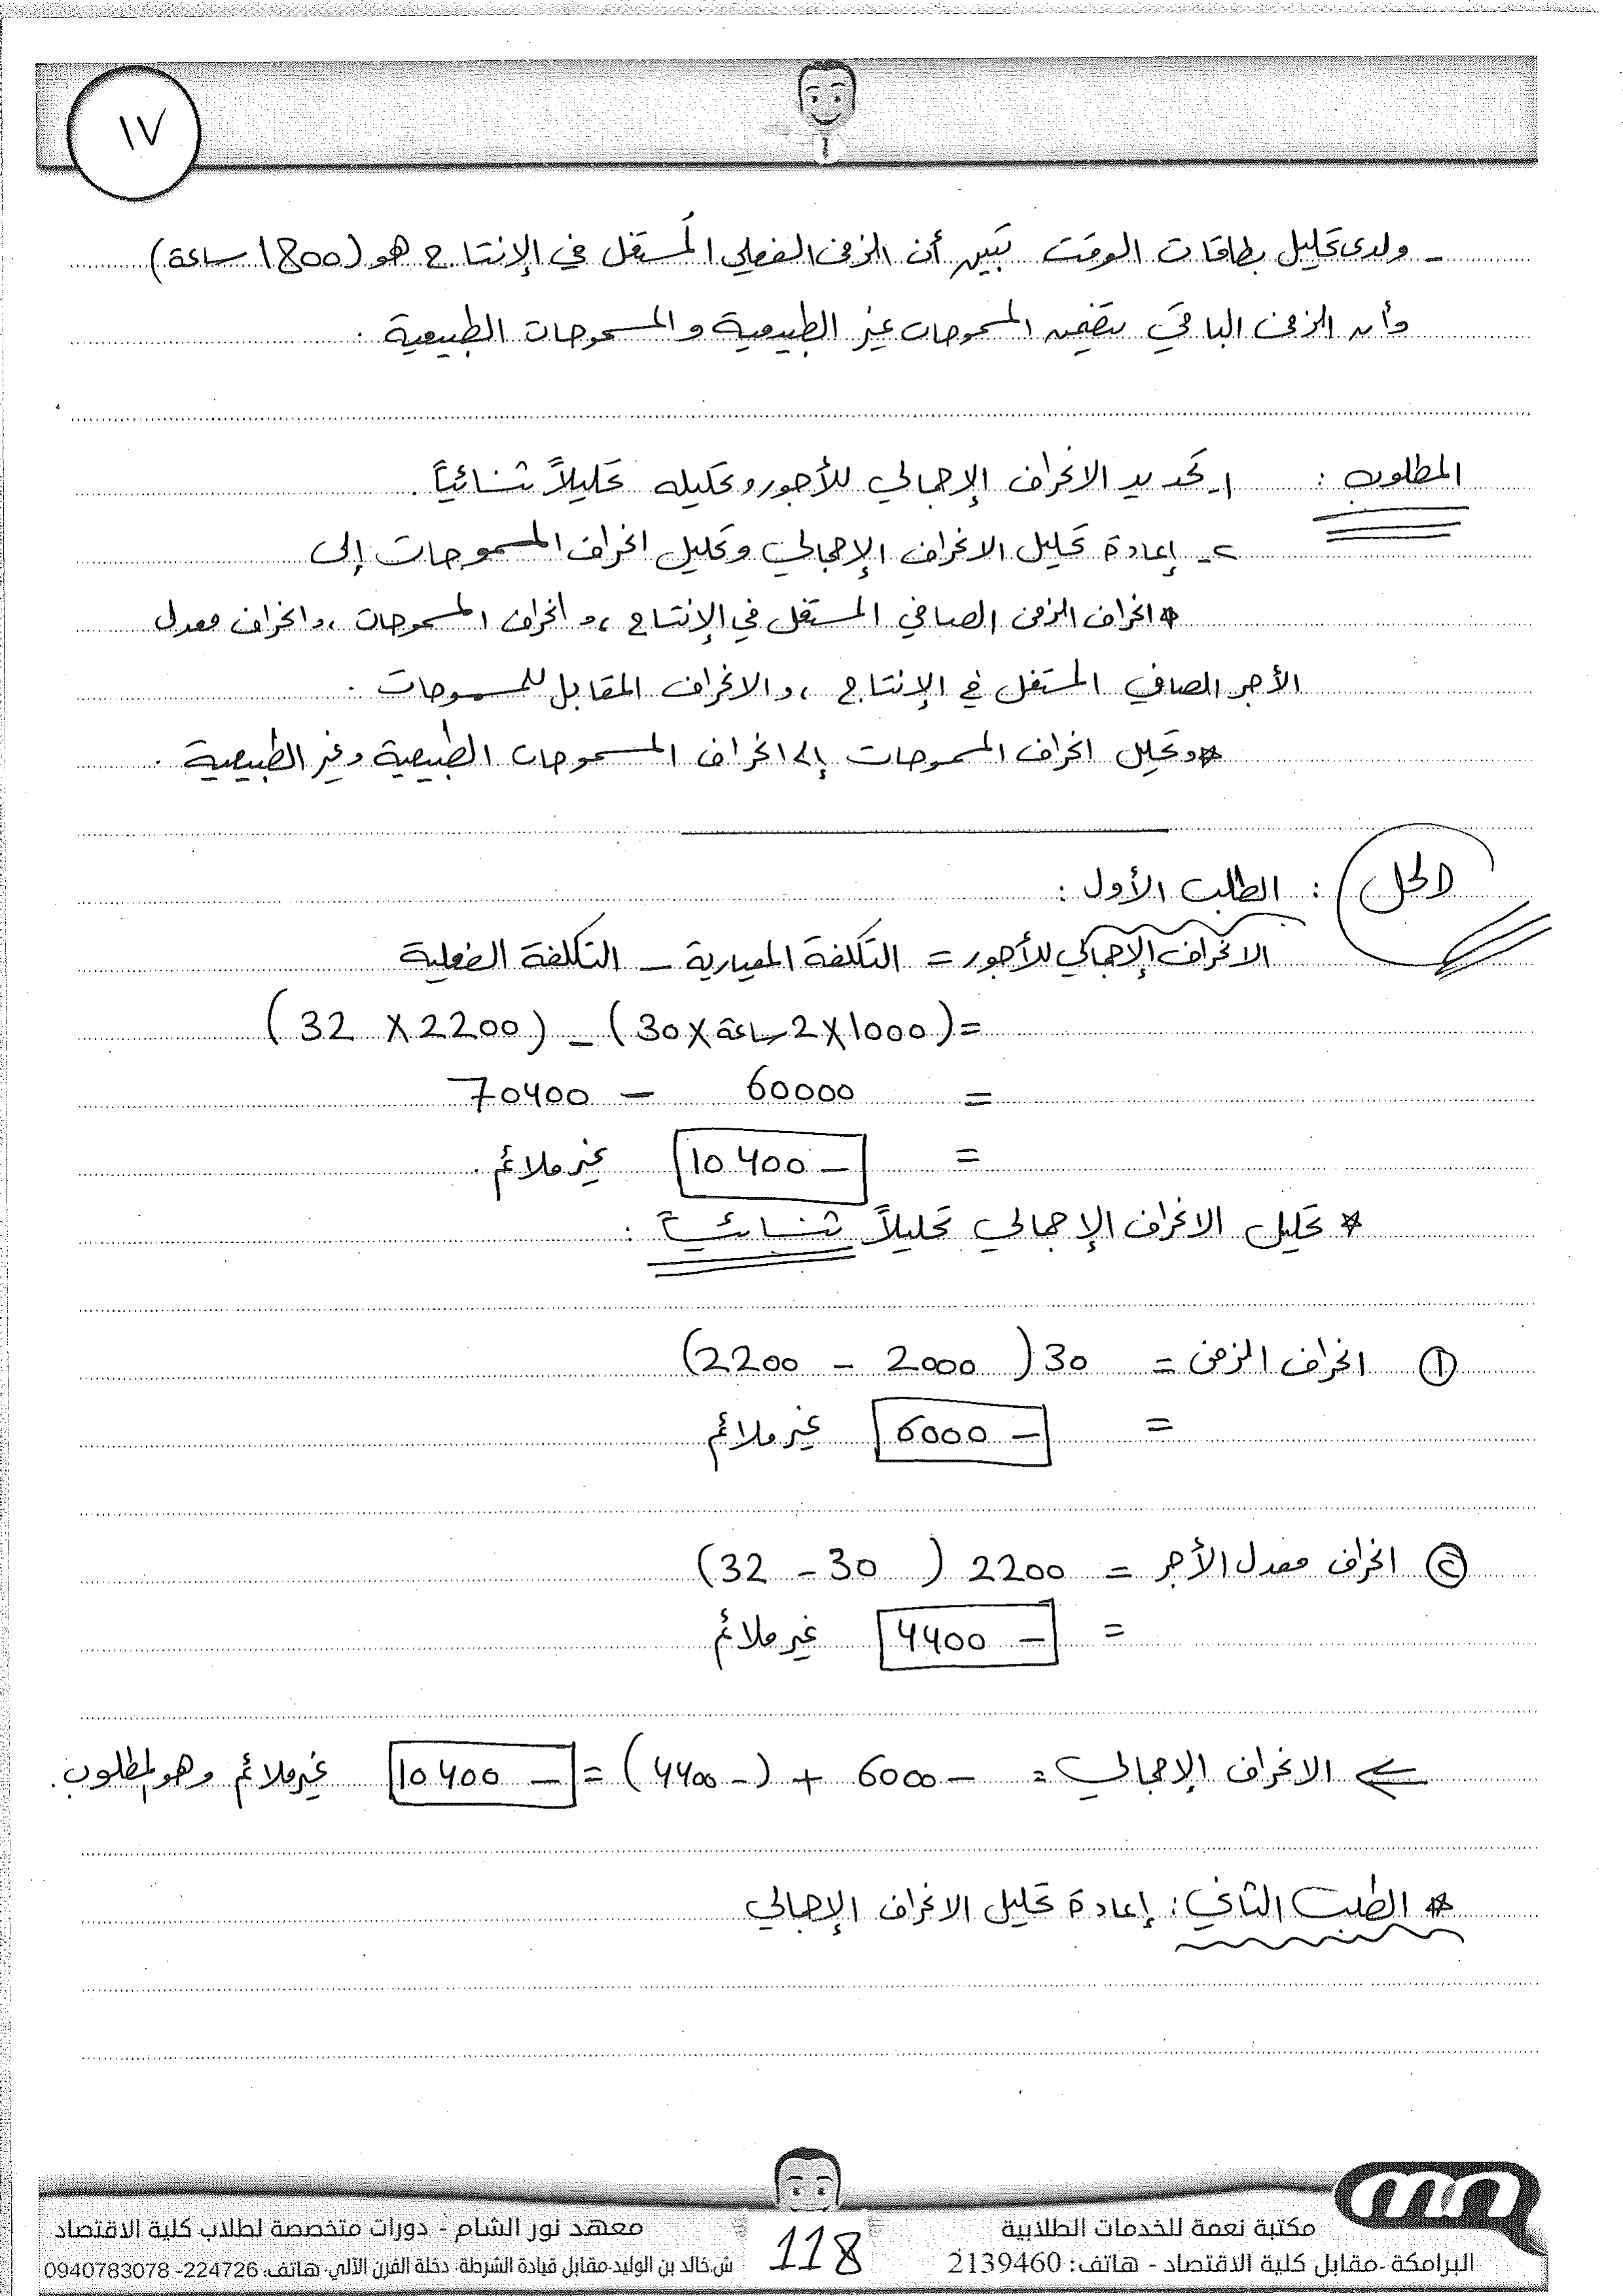 ١٧
- ولدى تحليل بطاقات الوقت تبين أن الزمن الفعلي المستغل في الإنتاج هو (1800 ساعة)
وأن الزمن الباقي يتضمن المسموحات غير الطبيعية والمسموحات الطبيعية .
المطلوب : 1- تحديد الانحراف الإجمالي للأجور وتحليله تحليلاً ثنائياً .
٢- إعادة تحليل الانحراف الإجمالي وتحليل انحراف المسموحات إلى
* انحراف الزمن الصافي المستغل في الإنتاج ، وانحراف المسموحات ، وانحراف معدل
الأجر الصافي المستغل في الإنتاج ، والانحراف المقابل للمسموحات .
* وتحليل انحراف المسموحات إلى انحراف المسموحات الطبيعية وغير الطبيعية .
الحل : الطلب الأول :
الانحراف الإجمالي للأجور = التكلفة المعيارية - التكلفة الفعلية
= (1000 × 2 ساعة × 30) - (2200 × 32)
= 60000 - 70400
= - 10400 غير ملائم .
* تحليل الانحراف الإجمالي تحليلاً ثنائياً :
① انحراف الزمن = 30 (2000 - 2200)
= - 6000 غير ملائم
② انحراف معدل الأجر = 2200 (30 - 32)
= - 4400 غير ملائم
⇐ الانحراف الإجمالي = - 6000 + (- 4400) = - 10400 غير ملائم وهو المطلوب .
* الطلب الثاني : إعادة تحليل الانحراف الإجمالي
مكتبة نعمة للخدمات الطلابية
البرامكة -مقابل كلية الاقتصاد - هاتف: 2139460
118
معهد نور الشام - دورات متخصصة لطلاب كلية الاقتصاد
ش.خالد بن الوليد-مقابل قيادة الشرطة- دخلة الفرن الآلي- هاتف: 224726- 0940783078